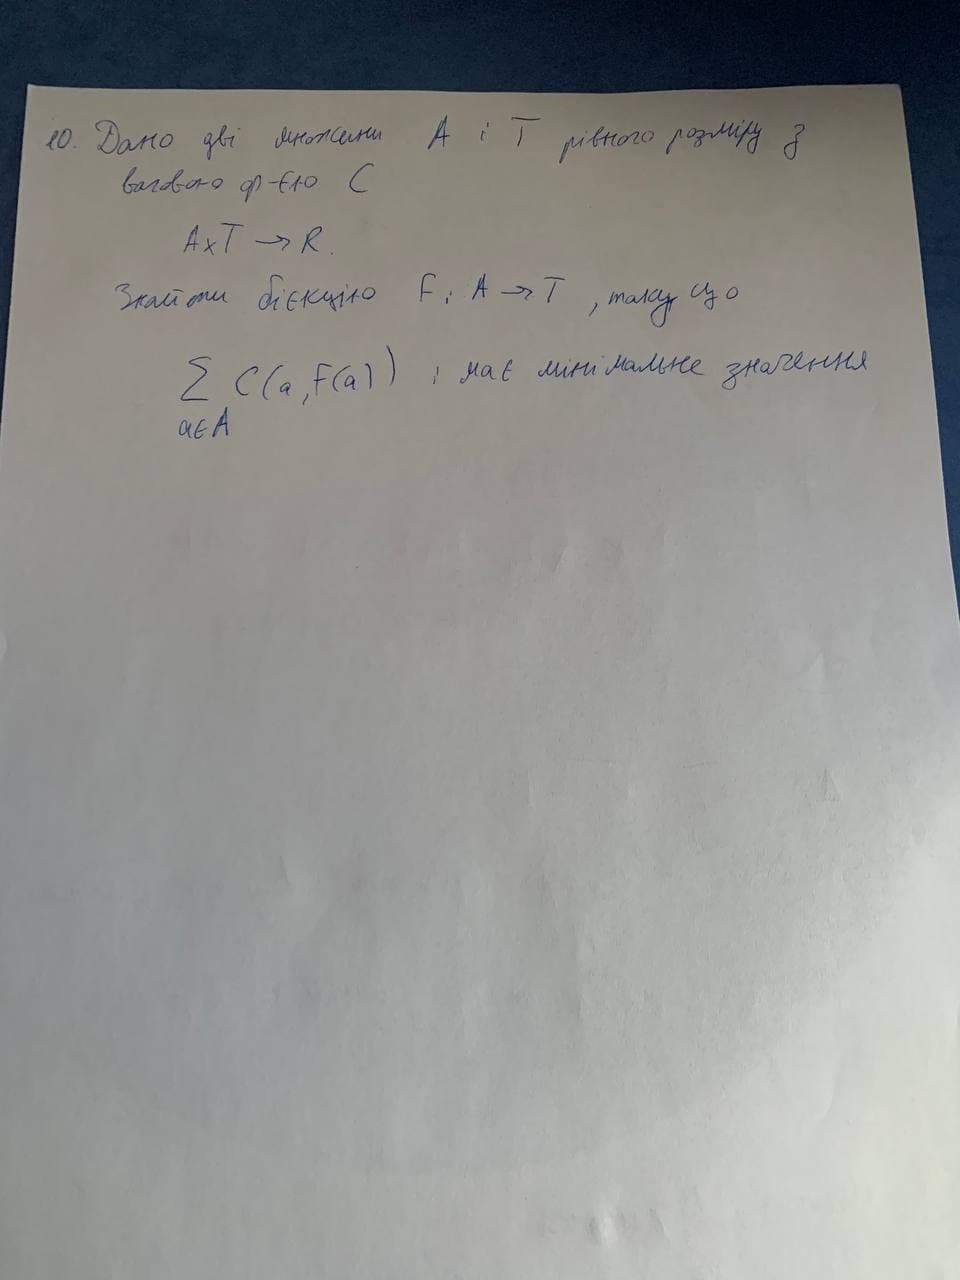 10. Дано дві множини A і T рівного розміру з
ваговою ф-єю C
A×T → R.
Знайти бієкцію F: A → T, таку, що
∑ C(a, F(a)) : має мінімальне значення
a∈A